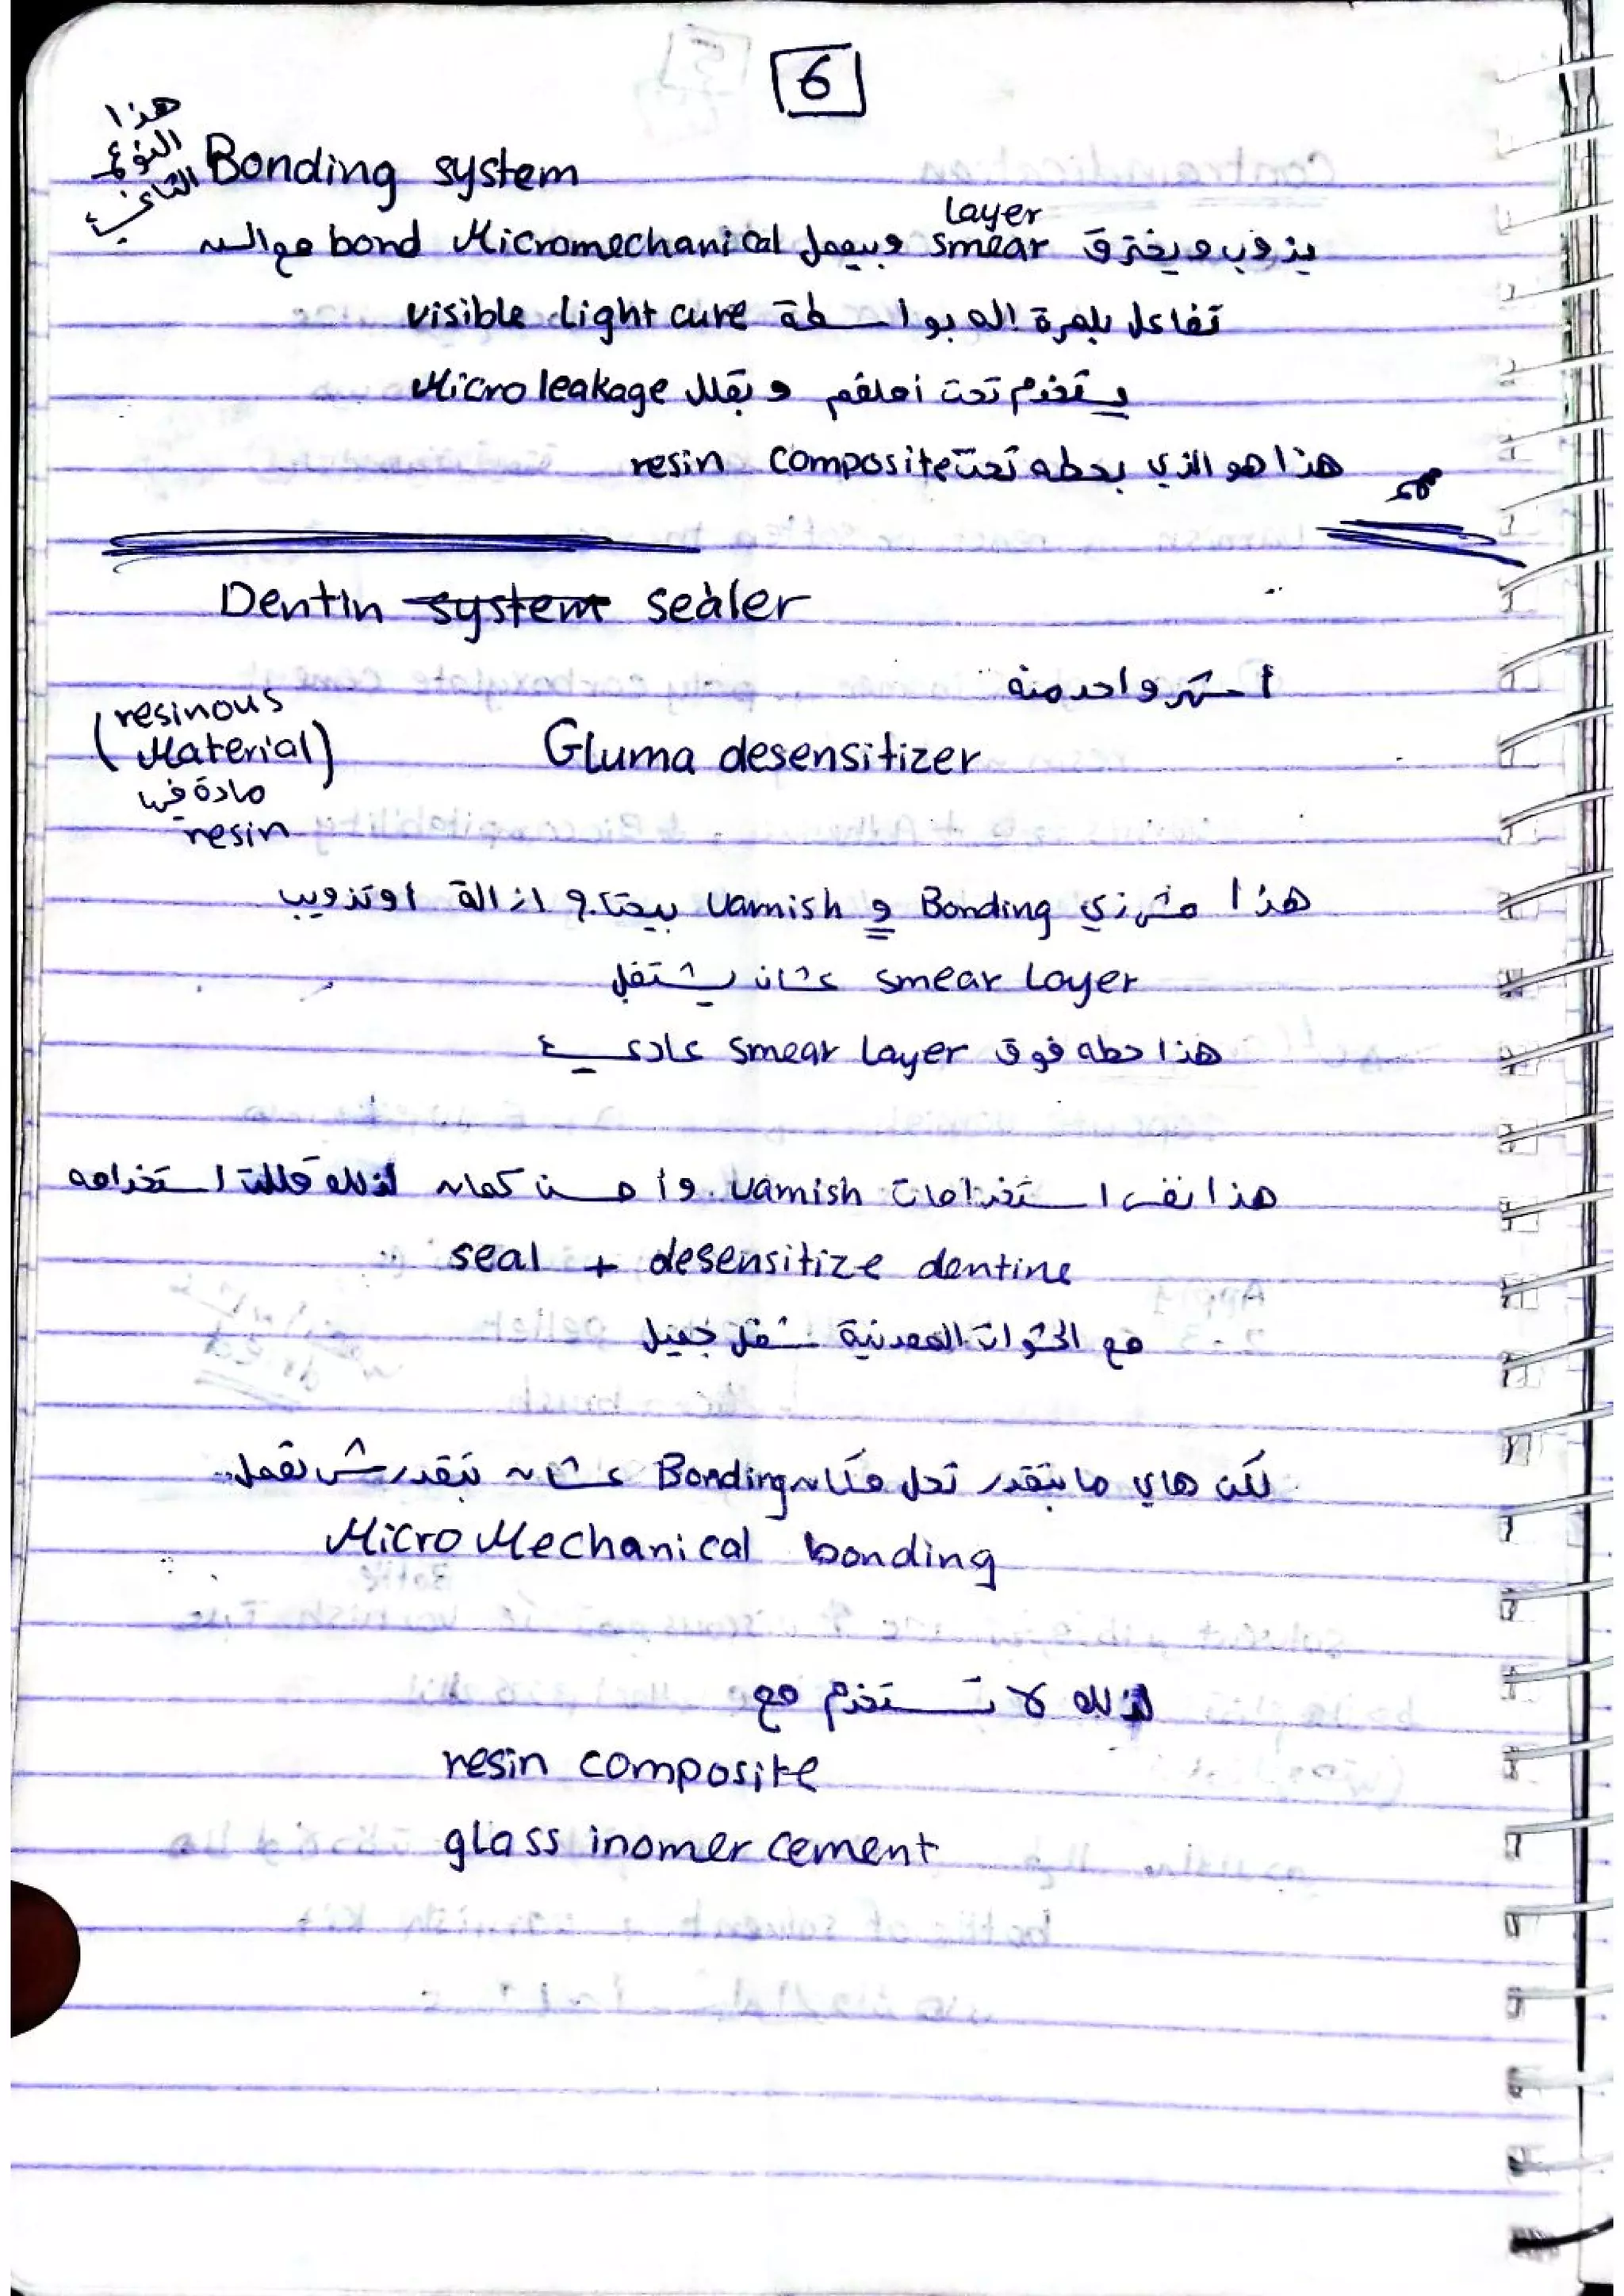 6
هذا
النوع
الثاني
Bonding system
يذوب و يخترق smear Layer وبيعمل Micromechanical bond مع السن
تفاعل بلمرة اله بواسطة visible Light cure
يستخدم تحت أملغم و بقلل Micro leakage
هذا هو الذي بحطه تحت resin composite
مهم
Dentin system sealer
أشهر واحد منه
(resinous
Material)
مادة فيها
resin
Gluma desensitizer
هذا مش زي Bonding و varnish بيحتاج ازالة او تذويب
smear Layer عشان يشتغل
هذا حطه فوق smear Layer عادي
هذا نفس استخدامات varnish وأحسن كمان لذلك قللت استخدامه
seal + desensitize dentine
مع الحشوات المعدنية شغل جميل
لكن هاي ما بتقدر تحل مكان Bonding عشان بتقدرش تعمل
Micro Mechanical bonding
لذلك لا تستخدم مع
resin composite
glass inomer cement